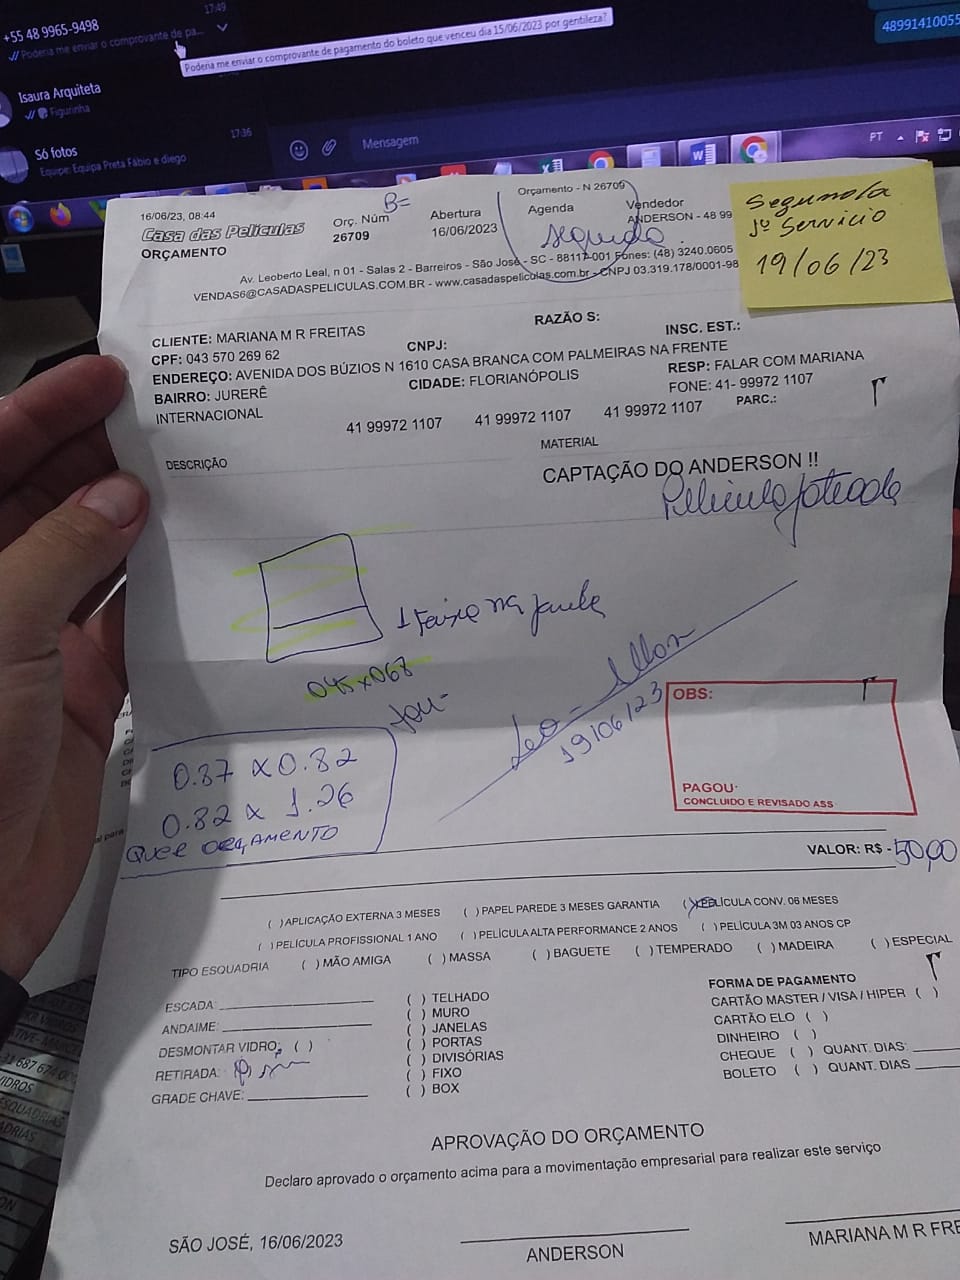 17:49
+55 48 9965-9498
Poderia me enviar o comprovante de pa...
Poderia me enviar o comprovante de pagamento do boleto que venceu dia 15/06/2023 por gentileza?
48991410055
Isaura Arquiteta
Figurinha
17:36
Só fotos
Equipe: Equipa Preta Fábio e diego
Mensagem
PT
Segunda
1º Servicio
19/06/23
Orçamento - N 26709
16/06/23, 08:44
B=
Casa das Películas
ORÇAMENTO
Orç. Núm
26709
Abertura
16/06/2023
Agenda
segunda
Vendedor
ANDERSON - 48 99
Av. Leoberto Leal, n 01 - Salas 2 - Barreiros - São José - SC - 88117-001 Fones: (48) 3240.0605
VENDAS6@CASADASPELICULAS.COM.BR - www.casadaspeliculas.com.br - CNPJ 03.319.178/0001-98
CLIENTE: MARIANA M R FREITAS
RAZÃO S:
CPF: 043 570 269 62
CNPJ:
INSC. EST.:
ENDEREÇO: AVENIDA DOS BÚZIOS N 1610 CASA BRANCA COM PALMEIRAS NA FRENTE
BAIRRO: JURERÊ INTERNACIONAL
CIDADE: FLORIANÓPOLIS
RESP: FALAR COM MARIANA
FONE: 41- 99972 1107
41 99972 1107 41 99972 1107 41 99972 1107
PARC.:
DESCRIÇÃO
MATERIAL
CAPTAÇÃO DO ANDERSON !!
Pelicula jateada
1 Faixa na janela
045x068
19/06/23
0.87 x 0.82
0.82 x 1.26
QUER ORÇAMENTO
OBS:
PAGOU:
CONCLUIDO E REVISADO ASS
VALOR: R$ - 50,00
( ) APLICAÇÃO EXTERNA 3 MESES ( ) PAPEL PAREDE 3 MESES GARANTIA (X) PELÍCULA CONV. 06 MESES
( ) PELÍCULA PROFISSIONAL 1 ANO ( ) PELÍCULA ALTA PERFORMANCE 2 ANOS ( ) PELÍCULA 3M 03 ANOS CP
TIPO ESQUADRIA ( ) MÃO AMIGA ( ) MASSA ( ) BAGUETE ( ) TEMPERADO ( ) MADEIRA ( ) ESPECIAL
ESCADA:
ANDAIME:
DESMONTAR VIDRO: ( )
RETIRADA:
GRADE CHAVE:
( ) TELHADO
( ) MURO
( ) JANELAS
( ) PORTAS
( ) DIVISÓRIAS
( ) FIXO
( ) BOX
FORMA DE PAGAMENTO
CARTÃO MASTER / VISA / HIPER ( )
CARTÃO ELO ( )
DINHEIRO ( )
CHEQUE ( ) QUANT. DIAS:
BOLETO ( ) QUANT. DIAS
APROVAÇÃO DO ORÇAMENTO
Declaro aprovado o orçamento acima para a movimentação empresarial para realizar este serviço
SÃO JOSÉ, 16/06/2023
ANDERSON
MARIANA M R FRE